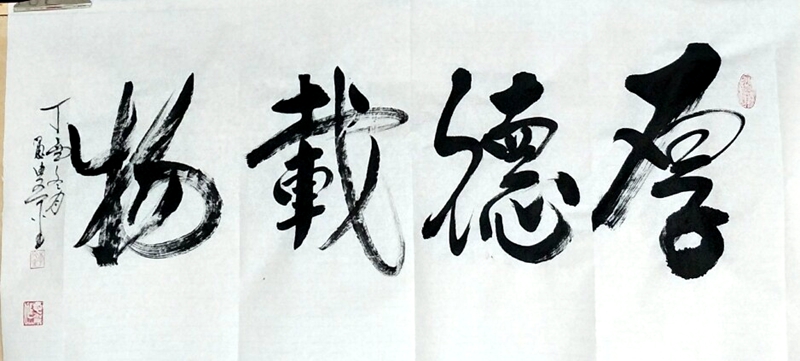 厚德載物
丁酉冬月